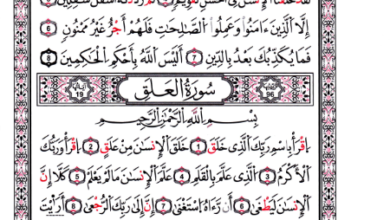 لَقَدْ خَلَقْنَا الْإِنسَٰنَ فِي أَحْسَنِ تَقْوِيمٍ ثُمَّ رَدَدْنَٰهُ أَسْفَلَ سَٰفِلِينَ
إِلَّا الَّذِينَ ءَامَنُوا وَعَمِلُوا الصَّٰلِحَٰتِ فَلَهُمْ أَجْرٌ غَيْرُ مَمْنُونٍ 6
فَمَا يُكَذِّبُكَ بَعْدُ بِالدِّينِ 7 أَلَيْسَ اللَّهُ بِأَحْكَمِ الْحَٰكِمِينَ 8
19 سُورَةُ الْعَلَقِ 96
بِسْمِ اللَّهِ الرَّحْمَٰنِ الرَّحِيمِ
اقْرَأْ بِاسْمِ رَبِّكَ الَّذِي خَلَقَ 1 خَلَقَ الْإِنسَٰنَ مِنْ عَلَقٍ 2 اقْرَأْ وَرَبُّكَ
الْأَكْرَمُ 3 الَّذِي عَلَّمَ بِالْقَلَمِ 4 عَلَّمَ الْإِنسَٰنَ مَا لَمْ يَعْلَمْ 5 كَلَّا إِنَّ
الْإِنسَٰنَ لَيَطْغَىٰ 6 أَن رَّءَاهُ اسْتَغْنَىٰ 7 إِنَّ إِلَىٰ رَبِّكَ الرُّجْعَىٰ 8 أَرَءَيْتَ